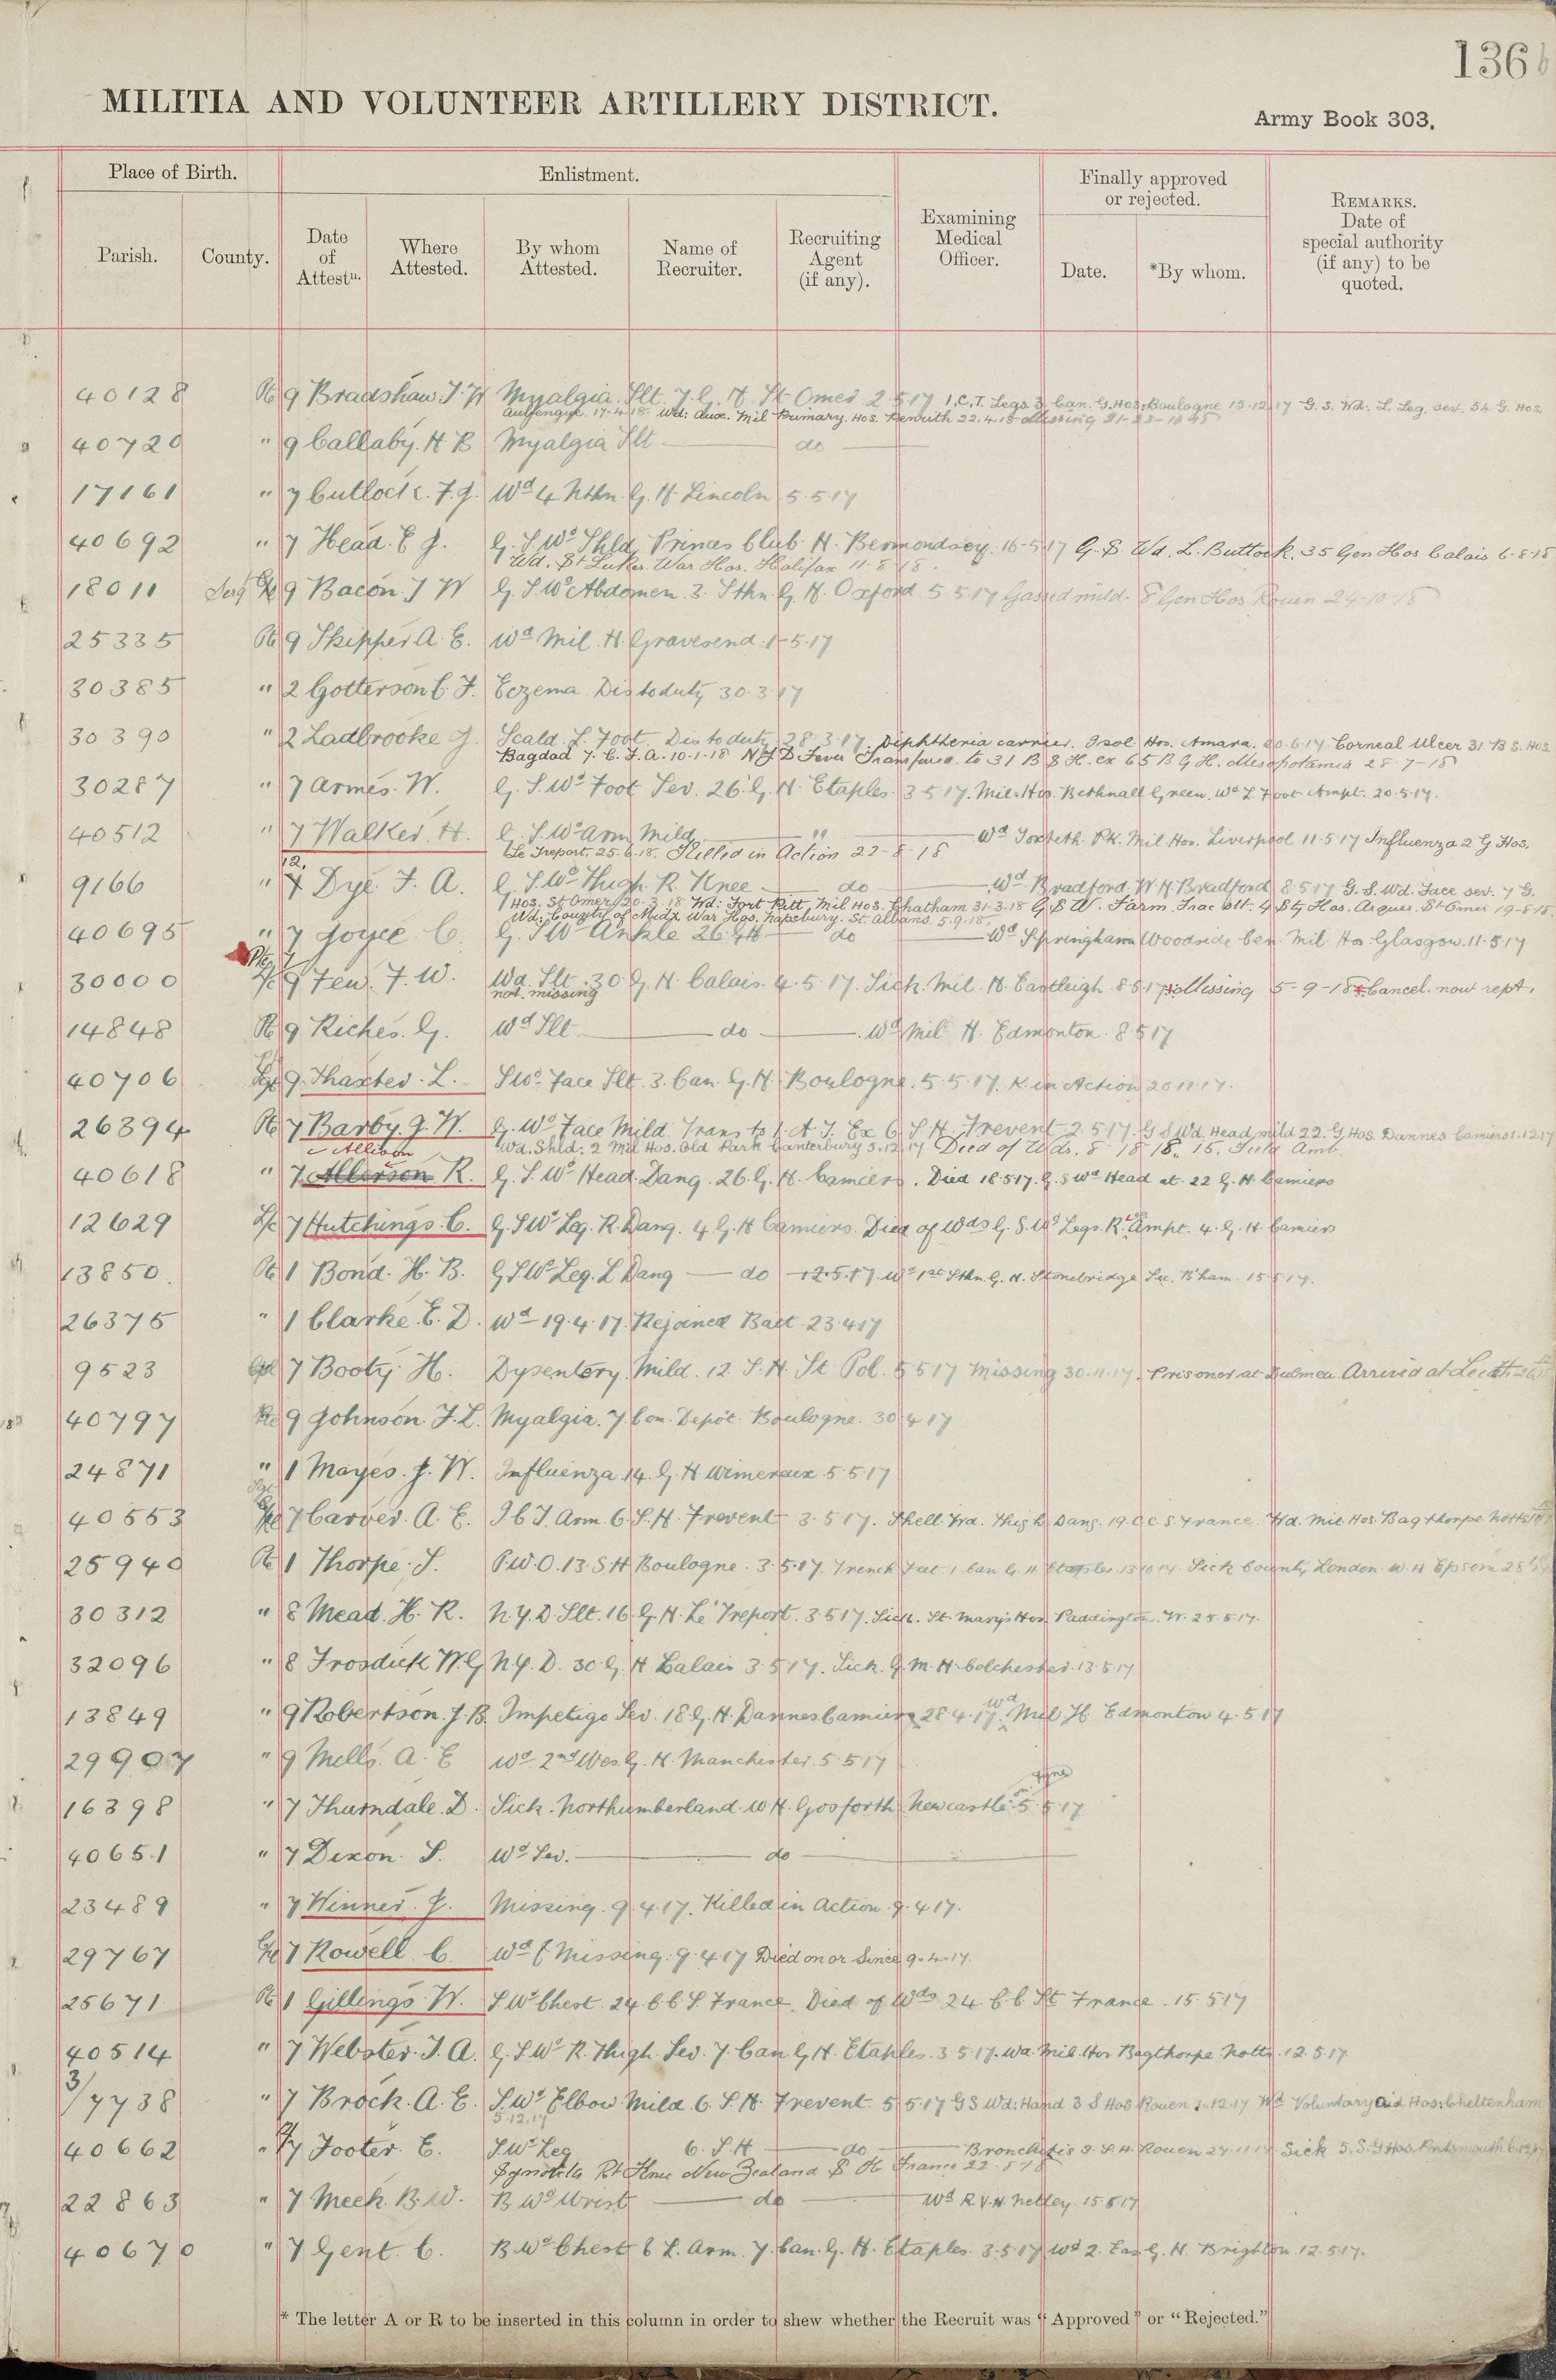 136
MILITIA AND VOLUNTEER ARTILLERY DISTRICT.
Army Book 303.
Place of Birth.
Enlistment.
Finally approved
or rejected.
Parish.
County.
Date
of
Attestn.
Where
Attested.
By whom
Attested.
Name of
Recruiter.
Recruiting
Agent
(if any).
Examining
Medical
Officer.
Date.
*By whom.
REMARKS.
Date of
special authority
(if any) to be
quoted.
40128 Pte 9 Bradshaw. J. W Myalgia. Slt. 7. G. H. St Omer 2.5.17 I.C.T. Legs. 3 Can. G. Hos: Boulogne 15.12.17 G.S. Wd. L. Leg. sev. 54 G. Hos.
17.4.18. Wd: Aux. Mil Primary. Hos. Penrith 22.4.18 Missing 21-23-
40720 " 9 Callaby. H. B Myalgia Slt — do —
17161 " 7 Cutlock. F. J. Wd 4. Nthn. G. H. Lincoln 5.5.17
40692 " 7 Head. E. J. G. S. Wd Shld. Princes Club. H. Bermondsey. 16-5-17 G.S. Wd. L. Buttock. 35 Gen Hos Calais 6.8.18
Wd. St Lukes War Hos. Halifax 11-8-18.
18011 9 Bacon. J W G. S. Wd Abdomen. 3. Sthn. G. H. Oxford. 5.5.17 Gassed mild. 8 Gen Hos Rouen 24-10-18
25335 Pte 9 Skipper A. E. Wd Mil. H. Gravesend. 1-5.17
30385 " 2 Gotterson C. F. Eczema. Dis to duty 30.3.17
30390 " 2 Ladbrooke G. Scald. L. Foot. Dis to duty. 28.3.17. Diphtheria carrier. Isol. Hos. Amara. 20.6.17 Corneal Ulcer 31 B.S. Hos.
Bagdad 7. C. F. A. 10-1-18 NYD Fever Transferred. to 31 B S H. ex 65 B G H. Mesopotamia 28-7-18
30287 " 7 Armes. W. G. S. Wd Foot Sev. 26. G. H. Etaples. 3.5.17. Mil. Hos. Bethnall Green. Wd L. Foot Ampt. 20.5.17.
40512 " 7 Walker. H. G. S. Wd Arm Mild. — " — Wd Toxteth. Pk. Mil. Hos. Liverpool 11.5.17 Influenza 2 G Hos.
Le Treport. 25.6.18. Killed in Action 22-8-18
9166 " 12 7 Dye. F. A. G. S. Wd Thigh. R. Knee — do — Wd. Bradford. W. H. Bradford 8.5.17 G.S. Wd. Face sev. 7 G.
Hos. St Omer 20.3.18 Wd: Fort Pitt. Mil Hos. Chatham 31.3.18 G S W. F'arm. Frac slt. 4 Sty Hos. Arques. St Omer 19-8-18.
Wd: County of Middx War Hos. Napsbury. St. Albans. 5.9.18.
40695 " 7 Joyce C. G. S Wd Ankle 26 GH — do — Wd Springburn Woodside Cen. Mil. Hos. Glasgow. 11.5.17
30000 9 Few. F. W. Wd. Slt. 30. G. H. Calais. 4.5.17. Sick. Mil. H. Eastleigh. 8.5.17 Missing 5-9-18 Cancel. now rept.
not missing
14848 Pte 9 Riches. G. Wd Slt — do — Wd Mil H. Edmonton. 8.5.17
40706 Sgt 9 Thaxter. L. SWd Face Slt. 3. Can. G. H. Boulogne. 5.5.17. K. in Action 20.11.17.
26394 Pte 7 Barby. J. W. G. Wd Face Mild. Trans to 1. A. T. Ex 6. S H. Frevent 2.5.17. G S Wd. Head mild 22. G Hos. Dannes Camiers 1.12.17
Wd. Shld: 2 Mil Hos. Old Park Canterbury 5.12.17 Died of Wds. 8-18 15. Field Amb.
Allison
40618 " 7 Allerson R. G. S. Wd Head. Dang. 26. G. H. Camiers. Died 18.5.17. G. S Wd Head at 22 G. H. Camiers
12629 L/c 7 Hutchings. C. G. S Wd Leg. R. Dang. 4 G. H Camiers. Died of Wds G. S. Wd Legs. R. Leg Ampt. 4. G. H Camiers
13850. Pte 1 Bond. H. B. G S Wd Leg. L Dang — do — 12.5.17. Wd 1st Sthn G. H. Stonebridge Sec. B'ham. 15.5.17.
26375 " 1 Clarke. E. D. Wd 19.4.17. Rejoined Batt. 23.4.17
9523 Cpl 7 Booty. H. Dysentery. Mild. 12. S. H. St. Pol. 5.5.17 Missing 30.11.17. Prisoner at Dulmen. Arrived at Leith
40797 Pte 9 Johnson. F. L. Myalgia. 7. Con. Depôt. Boulogne. 30.4.17
24871 " 1 Mayes. J. W. Influenza. 14. G. H Wimereux. 5.5.17
40553 7 Carver. A. E. I C T. Arm. 6. S. H. Frevent 3.5.17. Shell Wd. Thigh Dang. 19. C C S France. Wd. Mil Hos. Bagthorpe Notts
25940 Pte 1 Thorpe. S. P. U. O. 13. S H Boulogne. 3.5.17. Trench Feet. 1 Can G. H Etaples 13.10.17. Sick County London. W. H Epsom
30312 " 8 Mead. H. R. N. Y. D. Slt. 16. G. H. Le Treport. 3.5.17. Sick. St. Mary's Hos. Paddington. W. 25.5.17.
32096 " 8 Frosdick W. G N. Y. D. 30. G. H Calais 3.5.17. Sick. G. M. H. Colchester. 13.5.17
13849 " 9 Robertson. J. B. Impetigo Sev. 18 G. H. Dannes Camiers 28.4.17. Wd Mil. H Edmonton 4.5.17
29907 " 9 Mells. A. E Wd 2nd Wes. G. H. Manchester. 5.5.17
16398 " 7 Thurndale. D. Sick. Northumberland. W H. Gosforth Newcastle on Tyne 5.5.17
40651 " 7 Dixon. S. Wd Sev. — do —
23489 " 7 Winner. J. Missing. 9.4.17. Killed in Action. 9.4.17.
29767 7 Rowell C. Wd & Missing. 9.4.17 Died on or Since 9.4.17.
25671 Pte 1 Gillings. W. S. Wd Chest. 24. C C S. France. Died of Wds 24. C. C. St France. 15.5.17
40514 " 7 Webster. J. A. G. S Wd R. Thigh. Sev. 7. Can G H. Etaples. 3.5.17. Wd. Mil. Hos. Bagthorpe. Notts. 12.5.17
3/7738 " 7 Brock. A. E. S. Wd Elbow Mild. 6. S. H. Frevent. 5.5.17 G S Wd: Hand 3 S Hos Rouen 1.12.17 Wd Voluntary Aid Hos: Cheltenham
5.12.17
40662 " 7 Footer. E. S. Wd Leg 6. S. H — do — Bronchitis 3. S. H. Rouen 24.11.17. Sick 5. S. G Hos. Portsmouth
Synovitis Rt Knee New Zealand S H France 22.5.18
22863 " 7 Meek. B. W. B Wd Wrist — do — Wd R. V. H. Netley. 15.5.17
40670 " 7 Gent. C. B Wd Chest & L. Arm. 7. Can. G. H. Etaples. 3.5.17 Wd 2. Eas. G. H. Brighton. 12.5.17.
* The letter A or R to be inserted in this column in order to shew whether the Recruit was "Approved" or "Rejected."